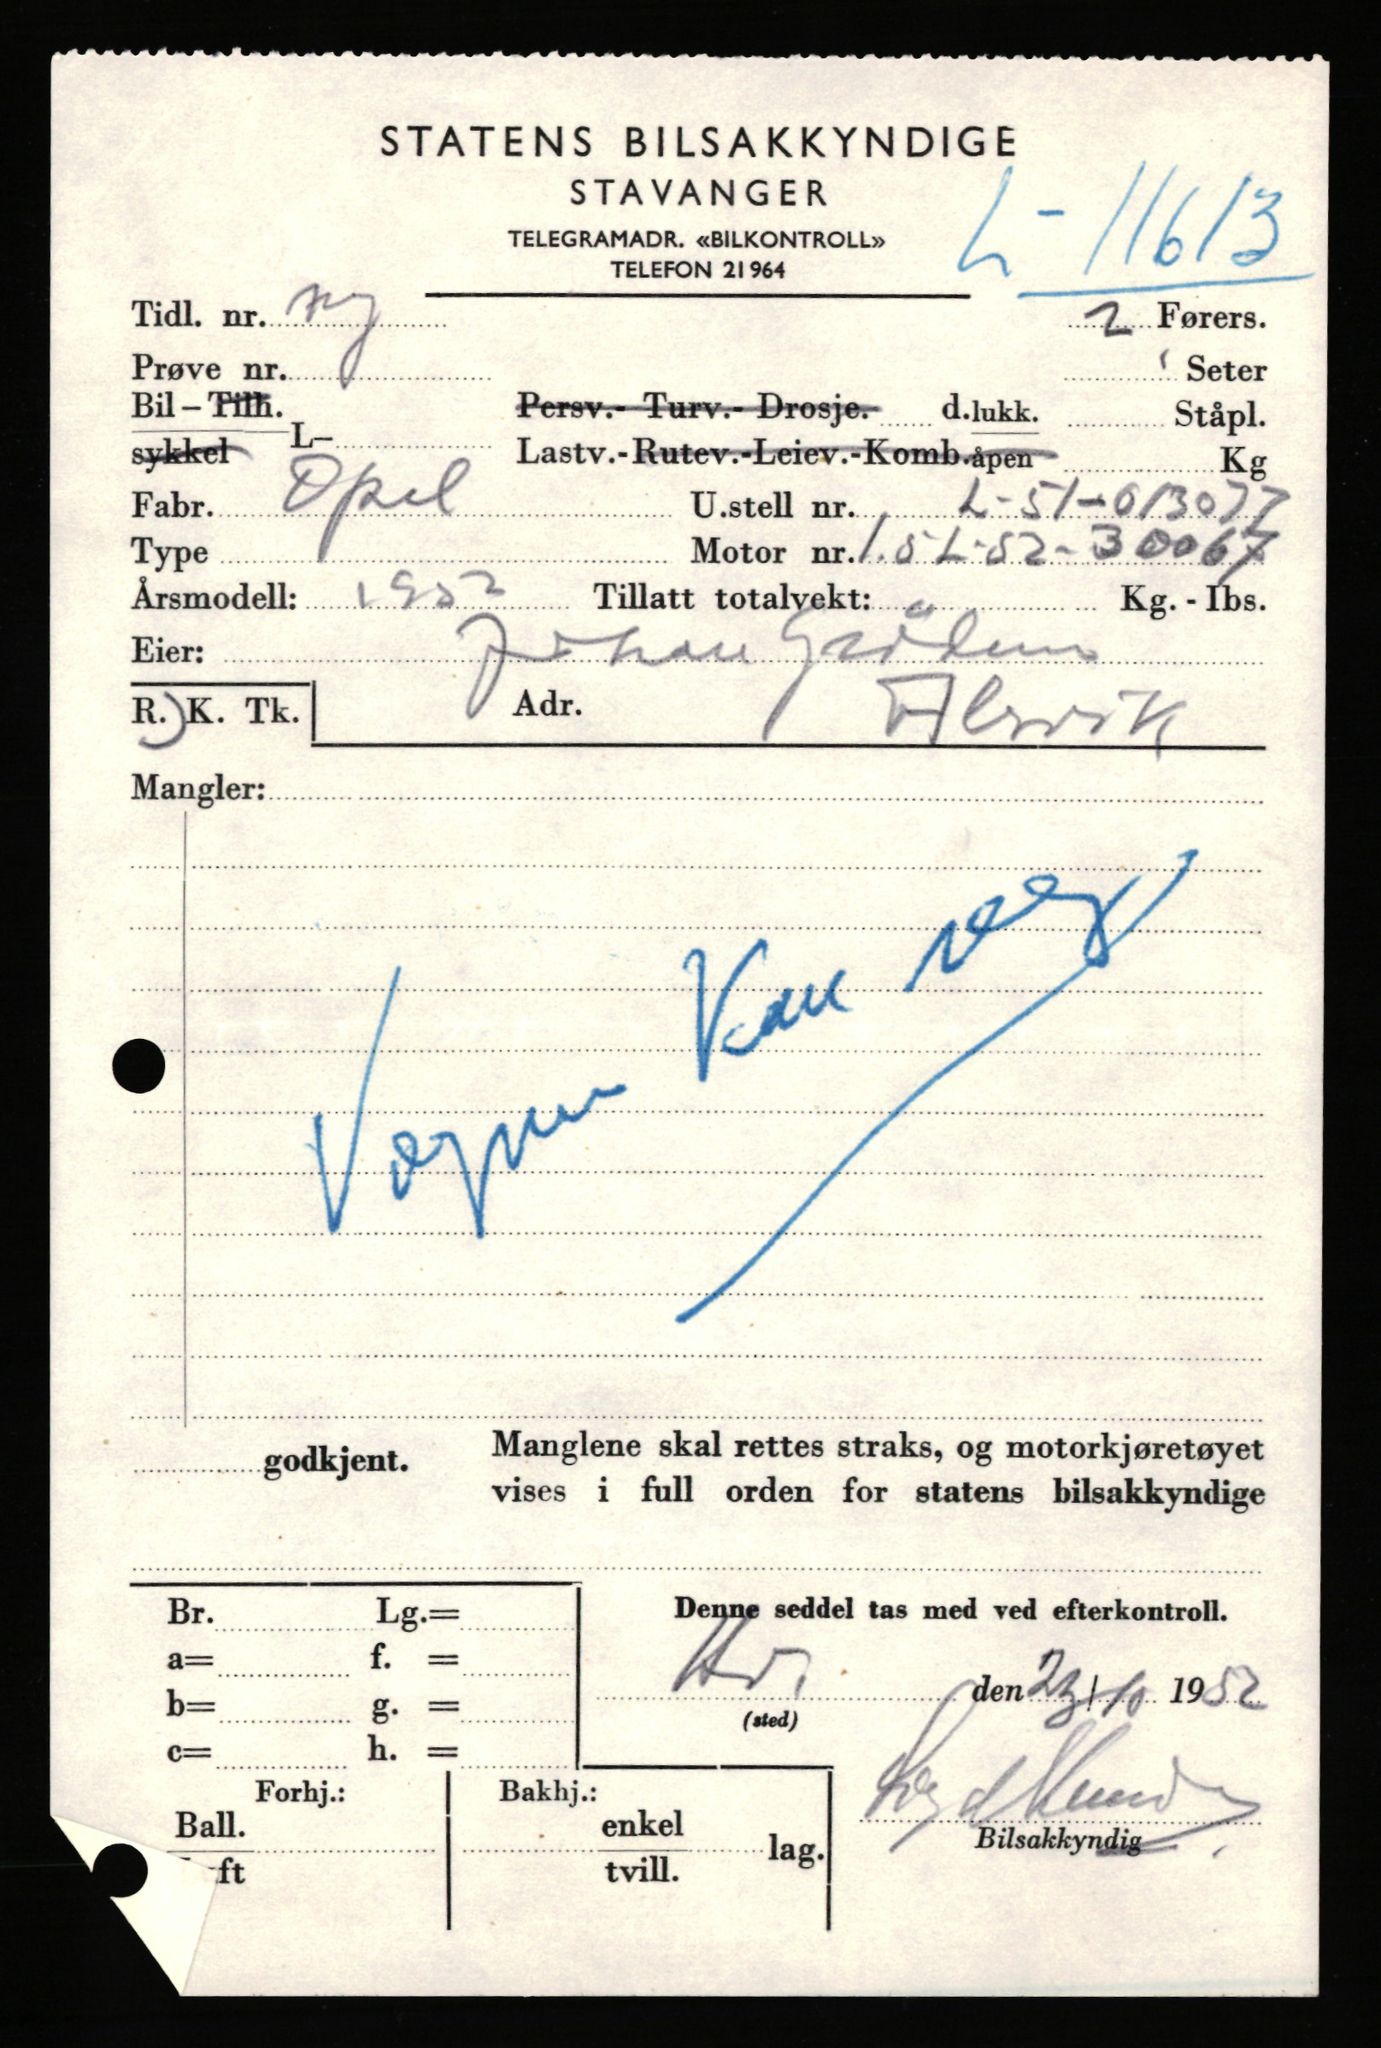 STATENS BILSAKKYNDIGE
STAVANGER
TELEGRAMADR. «BILKONTROLL»
TELEFON 21964
L-11613
Tidl. nr. ny
2 Førers.
Prøve nr.
Seter
Bil – Tilh. Persv.- Turv.- Drosje. d.lukk. Ståpl.
sykkel L– Lastv.-Rutev.-Leiev.-Komb.åpen Kg
Fabr. Opel U.stell nr. L-51-013077
Type Motor nr. 1.5L-52-30067
Årsmodell: 1952 Tillatt totalvekt: Kg. - lbs.
Eier: Johan
R. K. Tk. Adr.
Mangler:
Vognen kan reg
godkjent. Manglene skal rettes straks, og motorkjøretøyet
vises i full orden for statens bilsakkyndige
Br. Lg.= Denne seddel tas med ved efterkontroll.
a= f. =
den 23/10 1952
b= g. = (sted)
c= h. =
Forhj.: Bakhj.:
Ball. enkel
lag. Bilsakkyndig
ft tvill.